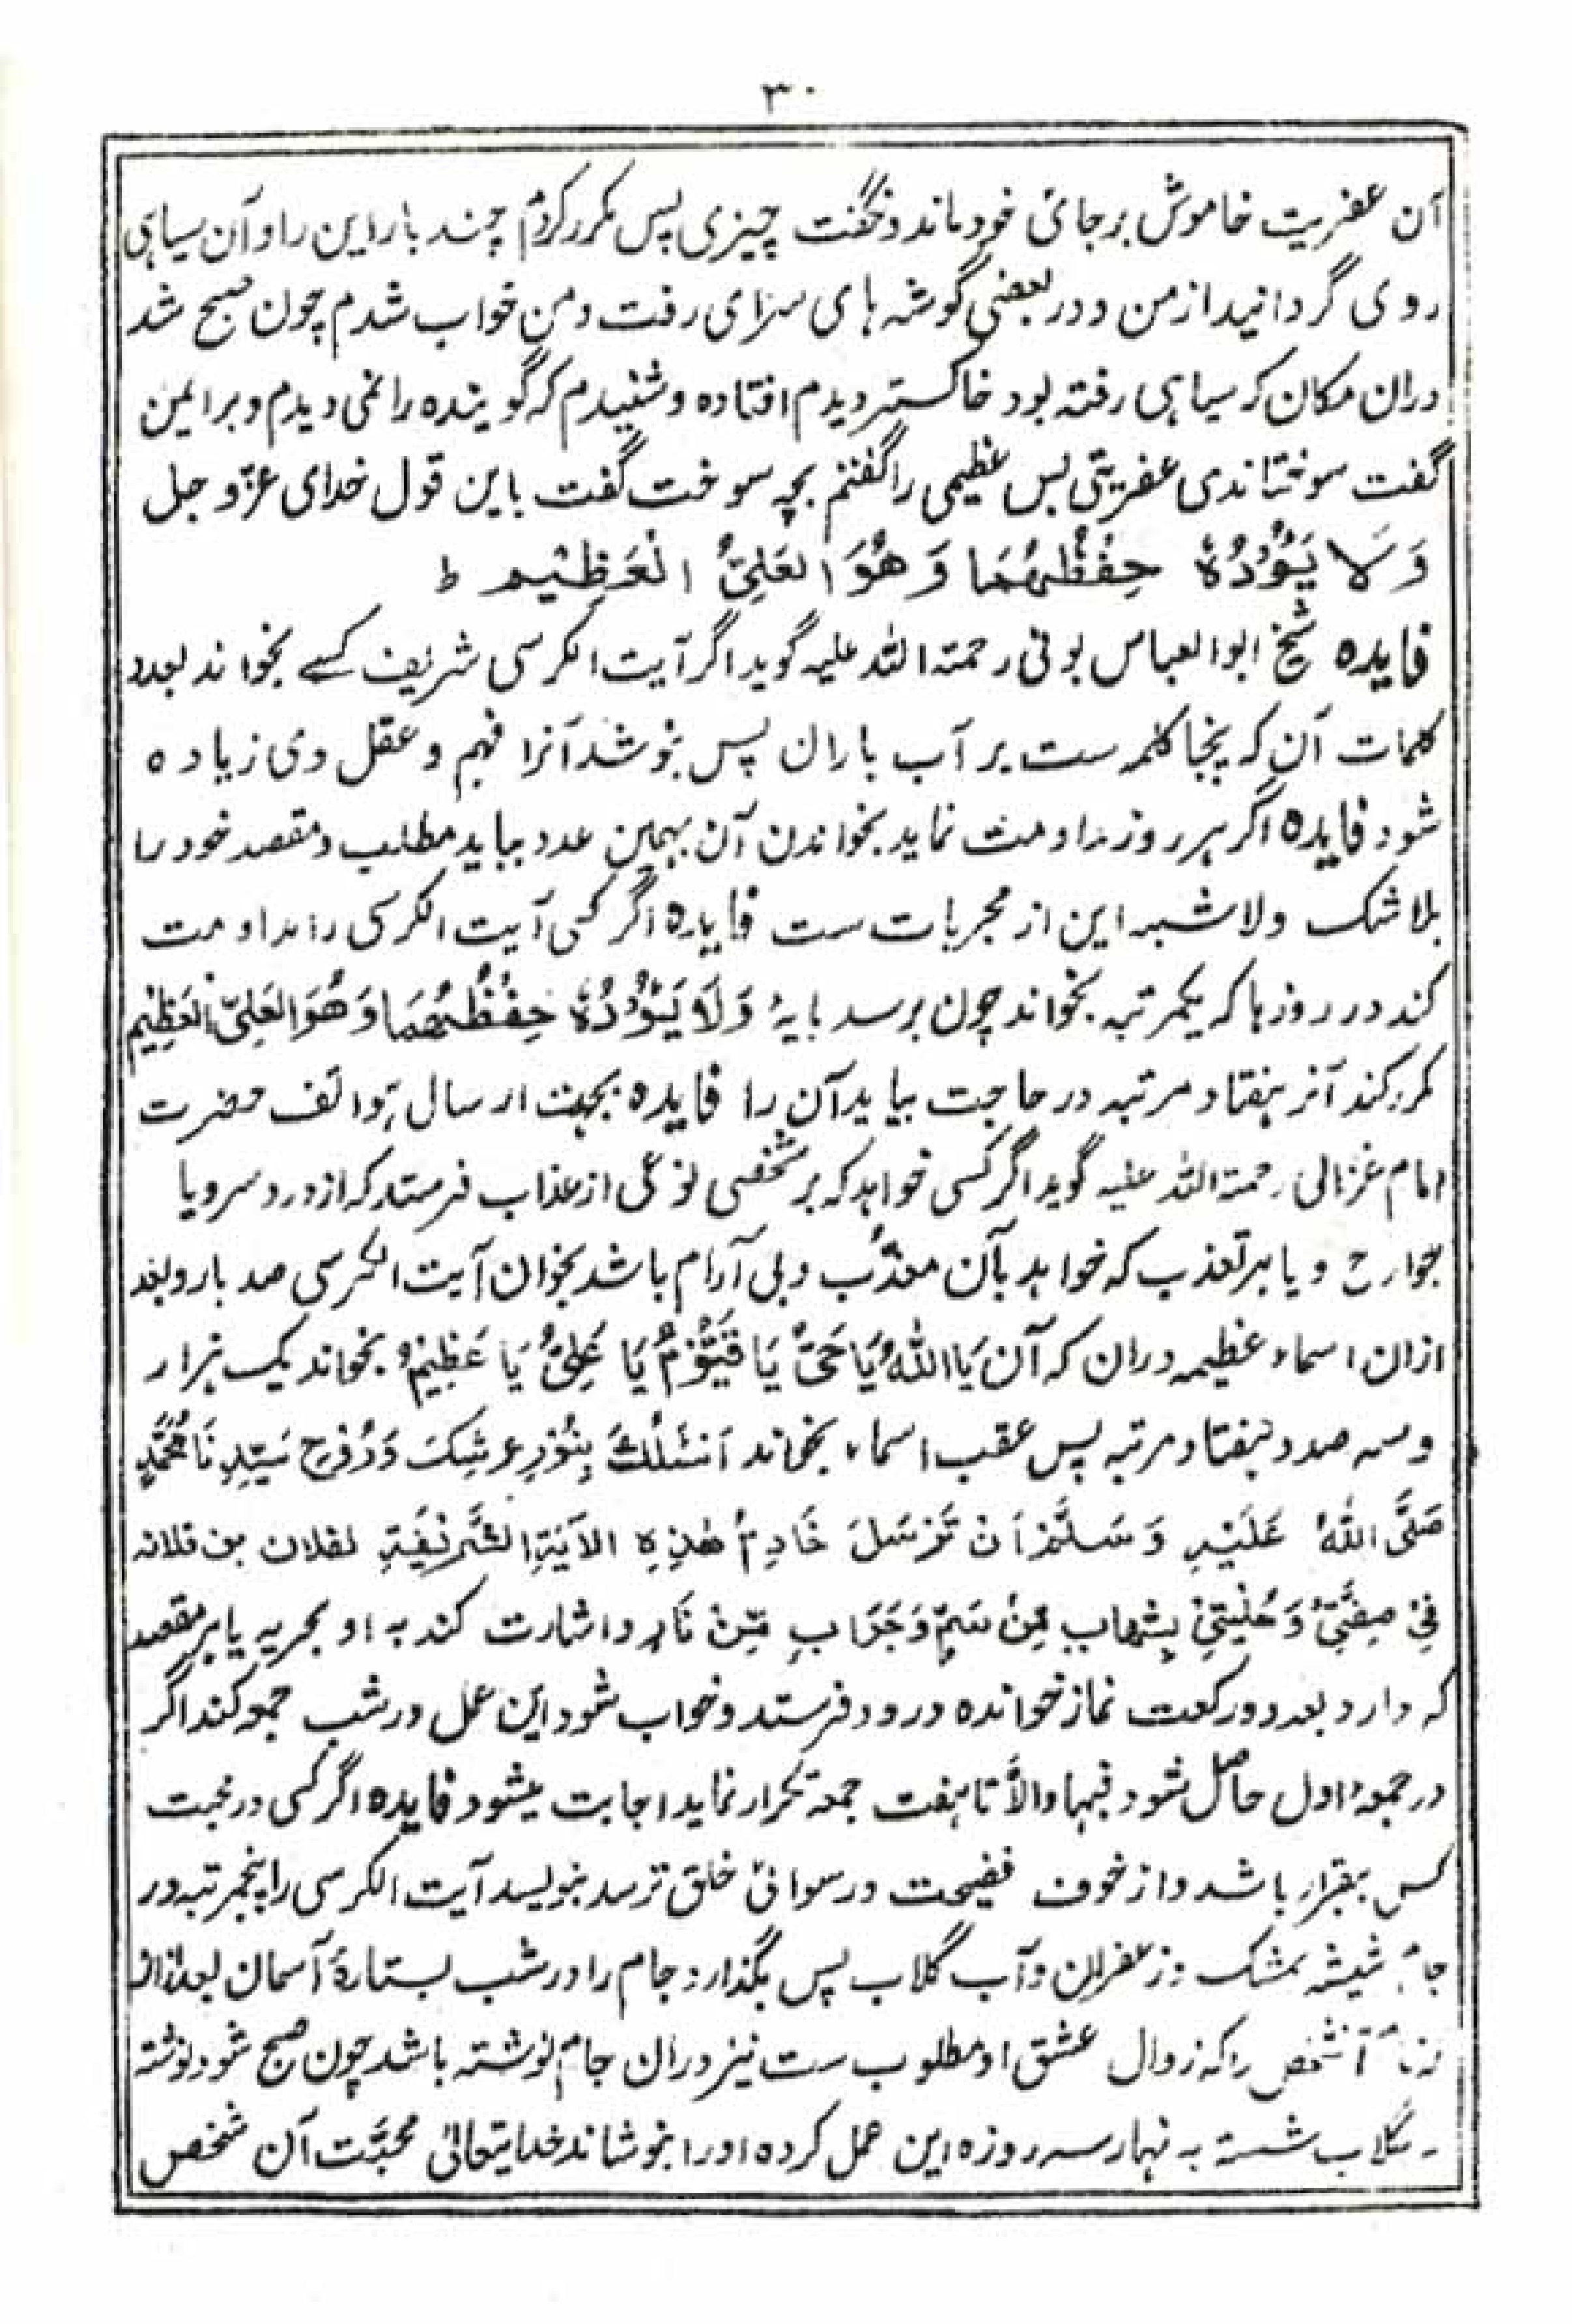 ۳۰
آن عفریت خاموش برجائ خود ماند و نگفت چیزی پس مکرر کردم چند بار این را و آن سیاہی
روی گردانید از من و در بعضی گوشہ ہای سرای رفت و من خواب شدم چون صبح شد
دران مکان کہ سیاہی رفتہ بود خاکستر دیدم افتادہ و شنیدم کہ گویندہ را نمی دیدم و برا یمن
گفت سوختاندی عفریتی بس عظیمی را گفتم بچہ سوخت گفت باین قول خدای عزّ و جل
وَلَا يَؤُدُهٗ حِفْظُهُمَا وَهُوَ الْعَلِىُّ الْعَظِيْم ط
فایدہ شیخ ابوالعباس بونی رحمتہ اللہ علیہ گوید اگر آیت الکرسی شریف کسے بخواند بعدد
کلمات آن کہ پنجا کلمہ ست بر آب باران پس بنوشد آنرا فہم و عقل وی زیادہ
شود فایدہ اگر ہر روز مداومت نماید بخواندن آن بہمین عدد بیاید مطلب و مقصد خود را
بلا شک ولا شبہ این از مجربات ست فایدہ اگر کسی آیت الکرسی را مداومت
کند در روزہا کہ یکمرتبہ بخواند چون برسد بایۂ وَلَا يَؤُدُهٗ حِفْظُهُمَا وَهُوَ الْعَلِىُّ الْعَظِيْم
مکرر کند آنر ہفتاد مرتبہ در حاجت بیاید آن را فایدہ بجہت ارسال ہواتف حضرت
امام غزالی رحمتہ اللہ علیہ گوید اگر کسی خواہد کہ بر شخصی نوعی از عذاب فرستد کہ از درد سر و یا
جوارح و یا ہر تعذب کہ خواہد بآن معذّب و بی آرام باشد بخوان آیت الکرسی صد بار و بعد
ازان اسماء عظیمہ دران کہ آن يَا اَللهُ يَا حَىُّ يَا قَيُّوْمُ يَا عَلِىُّ يَا عَظِيْمُ بخواند یک ہزار
و سہ صد و ہفتاد مرتبہ پس عقب اسماء بخواند اَسْئَلُكَ بِنُوْرِ عرشِكَ وَرُوْحِ سَيِّدِنَا مُحَمَّدٍ
صَلَّى اللهُ عَلَيْهِ وَسَلَّمْ اَنْ تَرْسَلَ خَادِمُ هٰذِهِ الْاٰيَةِ الشَّرِيْفَةِ لفلان بن فلانہ
فِىْ صِفَتِىْ وَحُلْيَتِىْ بِشِهَابٍ مِّنْ سَمٍّ وَحَرَابٍ مِّنْ نَارٍ و اشارت کند بہ او بحربہ یا ہر مقصد
کہ دارد بعد دو رکعت نماز خواندہ درود فرستد و خواب شود این عمل در شب جمعہ کند اگر
در جمعۂ اول حاصل شود فبہا والاّ تا ہفت جمعہ تکرار نماید اجابت میشود فایدہ اگر کسی در محبت
کس بیقرار باشد و از خوف فضیحت و رسوائ خلق ترسد بنویسد آیت الکرسی را پنجمرتبہ در
جام شیشہ بمشک و زعفران و آب گلاب پس بگذارد جام را در شب بستارۂ آسمان بعد ازان
آنشخص را کہ زوال عشق او مطلوب ست نیز دران جام نوشتہ باشد چون صبح شود نوشتہ
گلاب شستہ بہ نہار سہ روزہ این عمل کردہ اورا بنوشاند خدایتعالیٰ محبّت آن شخص